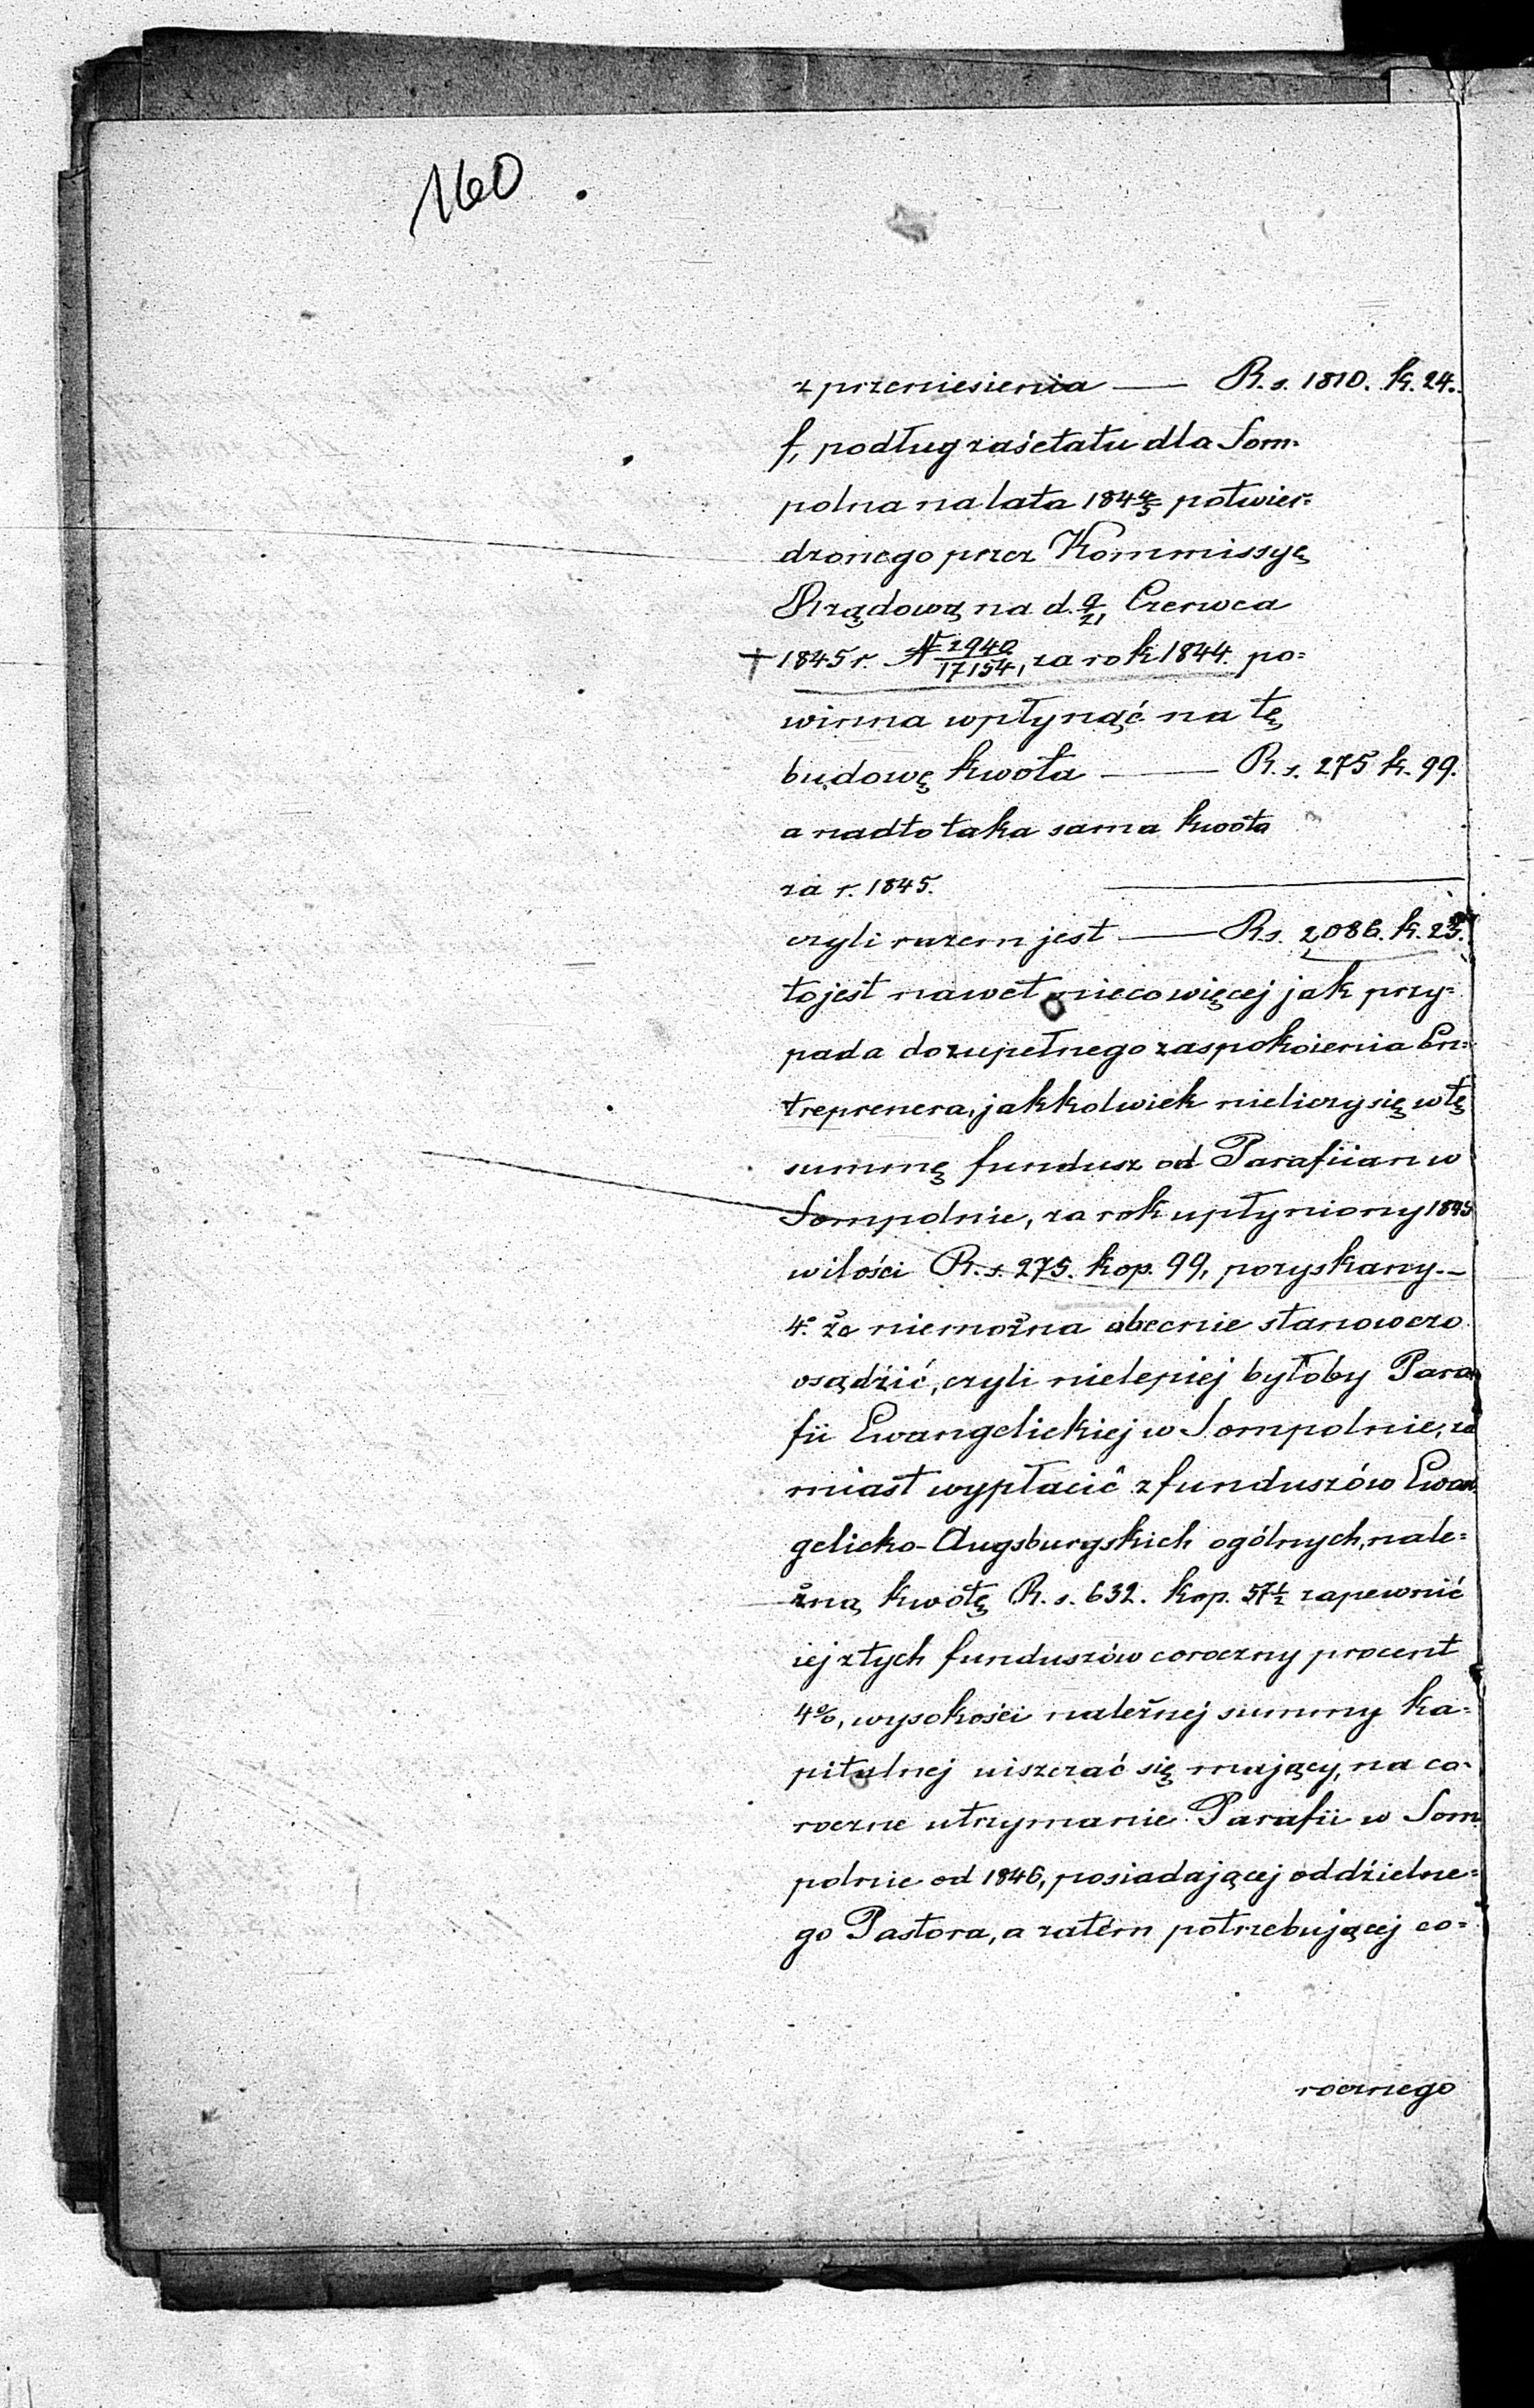 160
z przeniesienia — R.s. 1810. k. 24.
f, podług zaś etatu dla Som-
polna na lata 184 4/5 potwier-
dzonego przez Kommissyę
Rządową na d. 9/21 Czerwca
1845 r. N 2940/17154, za rok 1844. po-
winna wpłynąć na tę
budowę kwota — R.s. 275 k. 99.
a nadto taka sama kwota
za r. 1845.
czyli razem jest — Rs. 2086. k. 23.
to jest nawet nieco więcej jak przy-
pada do zupełnego zaspokoienia En-
treprenera, jakkolwiek nieliczy się w tę
summę fundusz od Parafiian w
Sompolnie, za rok upłyniony 1845
w ilości R.s. 275. kop. 99, pozyskany. —
4.° że niemożna obecnie stanowczo
osądzić, czyli nielepiej byłoby Para-
fii Ewangelickiej w Sompolnie, za
miast wypłacić z funduszów Ewan-
gelicko-Augsburgskich ogólnych, nale-
żną kwotę R.s. 632. kop. 57 1/2 zapewnić
iej z tych funduszów coroczny procent
4%, wysokości należnej summy ka-
pitalnej uiszczać się mający, na co-
roczne utrzymanie Parafii w Som-
polnie od 1846, posiadającej oddzielne-
go Pastora, a zatém potrzebującej co-
rocznego